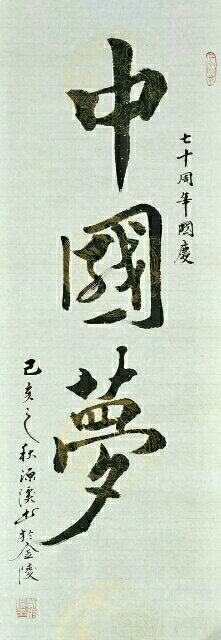 七十周年國慶
中國夢
己亥之秋源溪書於金陵